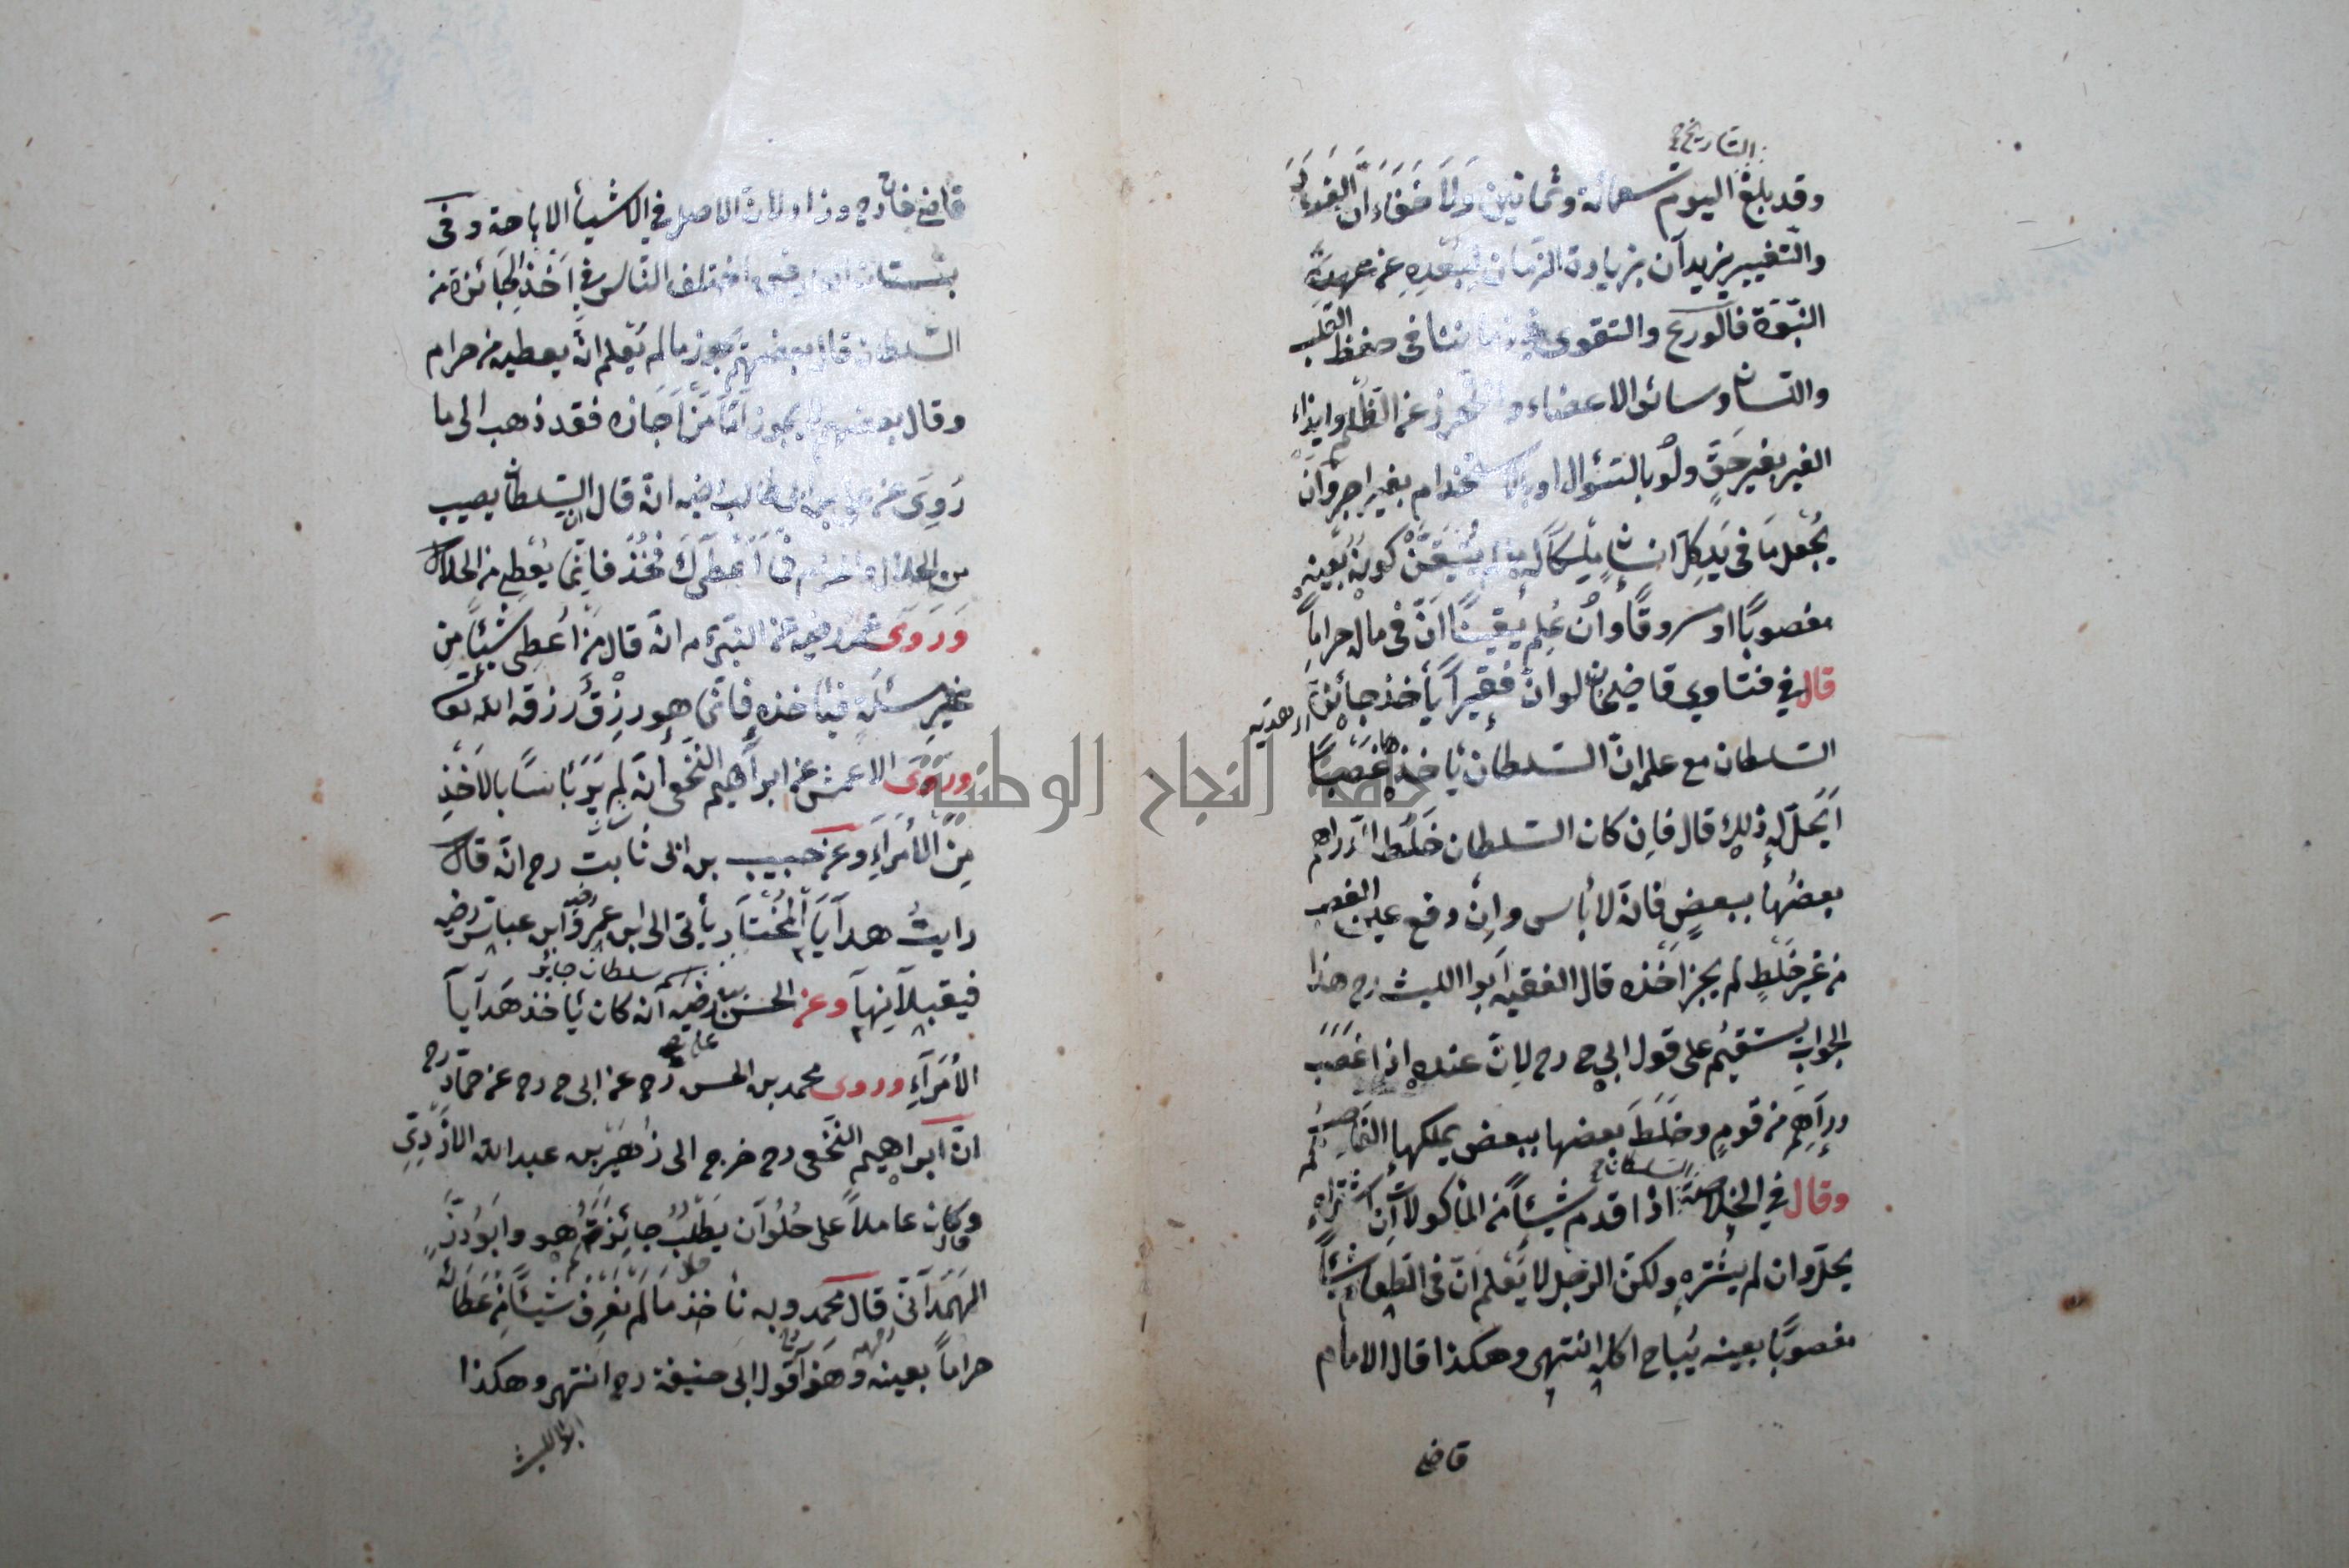 التاريخ
وقد بلغ اليوم تسعمائة وثمانين ولا خفاء ان الفساد
والتغيير يزيدان بزيادة الزمان لبعده عن عهد
النبوة فالورع والتقوى في زماننا في حفظ القلب
واللسان وسائر الاعضاء والتحرز عن الظلم وايذاء
الغير بغير حق ولو بالسؤال او بالاستخدام بغير اجر وان
يجعل ما في يد كل انسان ملكا له ما لم يتيقن كونه بعينه
مغصوبا او سروقا وان علم يقينا ان في مال حراما
قال في فتاوي قاضيخان لو ان فقيرا يأخذ جائزة
او هدية
السلطان مع علمه ان السلطان يأخذها غصبا
ايحل له ذلك قال فان كان السلطان خلط الدراهم
بعضها ببعض فانه لا بأس وان دفع عين الغصب
من غير خلط لم يجز اخذه قال الفقيه ابو الليث رح هذا
الجواب يستقيم على قول ابي ح رح لان عنده اذا غصب
دراهم من قوم وخلط بعضها ببعض يملكها الغاصب
وقال في الخلاصة السلطان اذا قدم شيئا من المأكولات ان اشتراه
يحل وان لم يشتره ولكن الرجل لا يعلم ان في الطعام شيئا
مغصوبا بعينه يباح اكله انتهى وهكذا قال الامام
قاضي
قاضي خان رح وزاد لان الاصل في الاشياء الاباحة وفى
بستان اختلف الناس في اخذ الجائزة من
السلطان قال بعضهم يجوز ما لم يعلم انه يعطيه من حرام
وقال بعضهم لا يجوز اما من اجازه فقد ذهب الى ما
روى عن علي بن ابي طالب رضيه انه قال ان السلطان يصيب
من الحلال والحرام فما اعطاك فخذ فانما يعطى من الحلال
وروى عمر رضيه عن النبي م انه قال من اعطى شيئا من
غير مسئلة فيأخذه فانما هو رزق رزقه الله تعا
وروى الاعمش عن ابراهيم النخعى انه لم ير بأسا بالاخذ
من الامراء وعن حبيب بن ابى ثابت رح انه قال
رايت هدايا المختار يأتى الى ابن عمر وابن عباس رضيه
فيقبلانها وعن الحسن رضيه انه كان يأخذ هدايا
اسم سلطان جائر
الامراء وروى محمد بن الحسن رح عن ابى ح رح عن حماد رح
ان ابراهيم النخعى رح خرج الى زهير بن عبد الله الازدى
وكان عاملا على حلوان يطلب جائزته هو وابو ذر
الهمدانى قال محمد وبه نأخذ ما لم نعرف شيئا من عطائه
حراما بعينه وهو قول ابى حنيفة رح انتهى وهكذا
ابو الليث
جامعة النجاح الوطنية